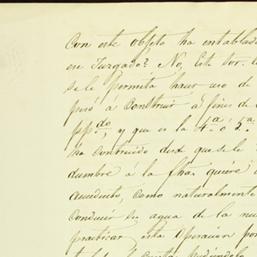 Con este objeto ha entablad
en Juzgado? No, Este Sor.
se le permita hacer uso de
pezó á construir á fines de
pp.do, y que es la 4.a ó 5.a
ha construido dice que se le
dumbre a la fha. quiere
Acueducto, como naturalmente
conducir su agua de la nu
practicar esta operacion por